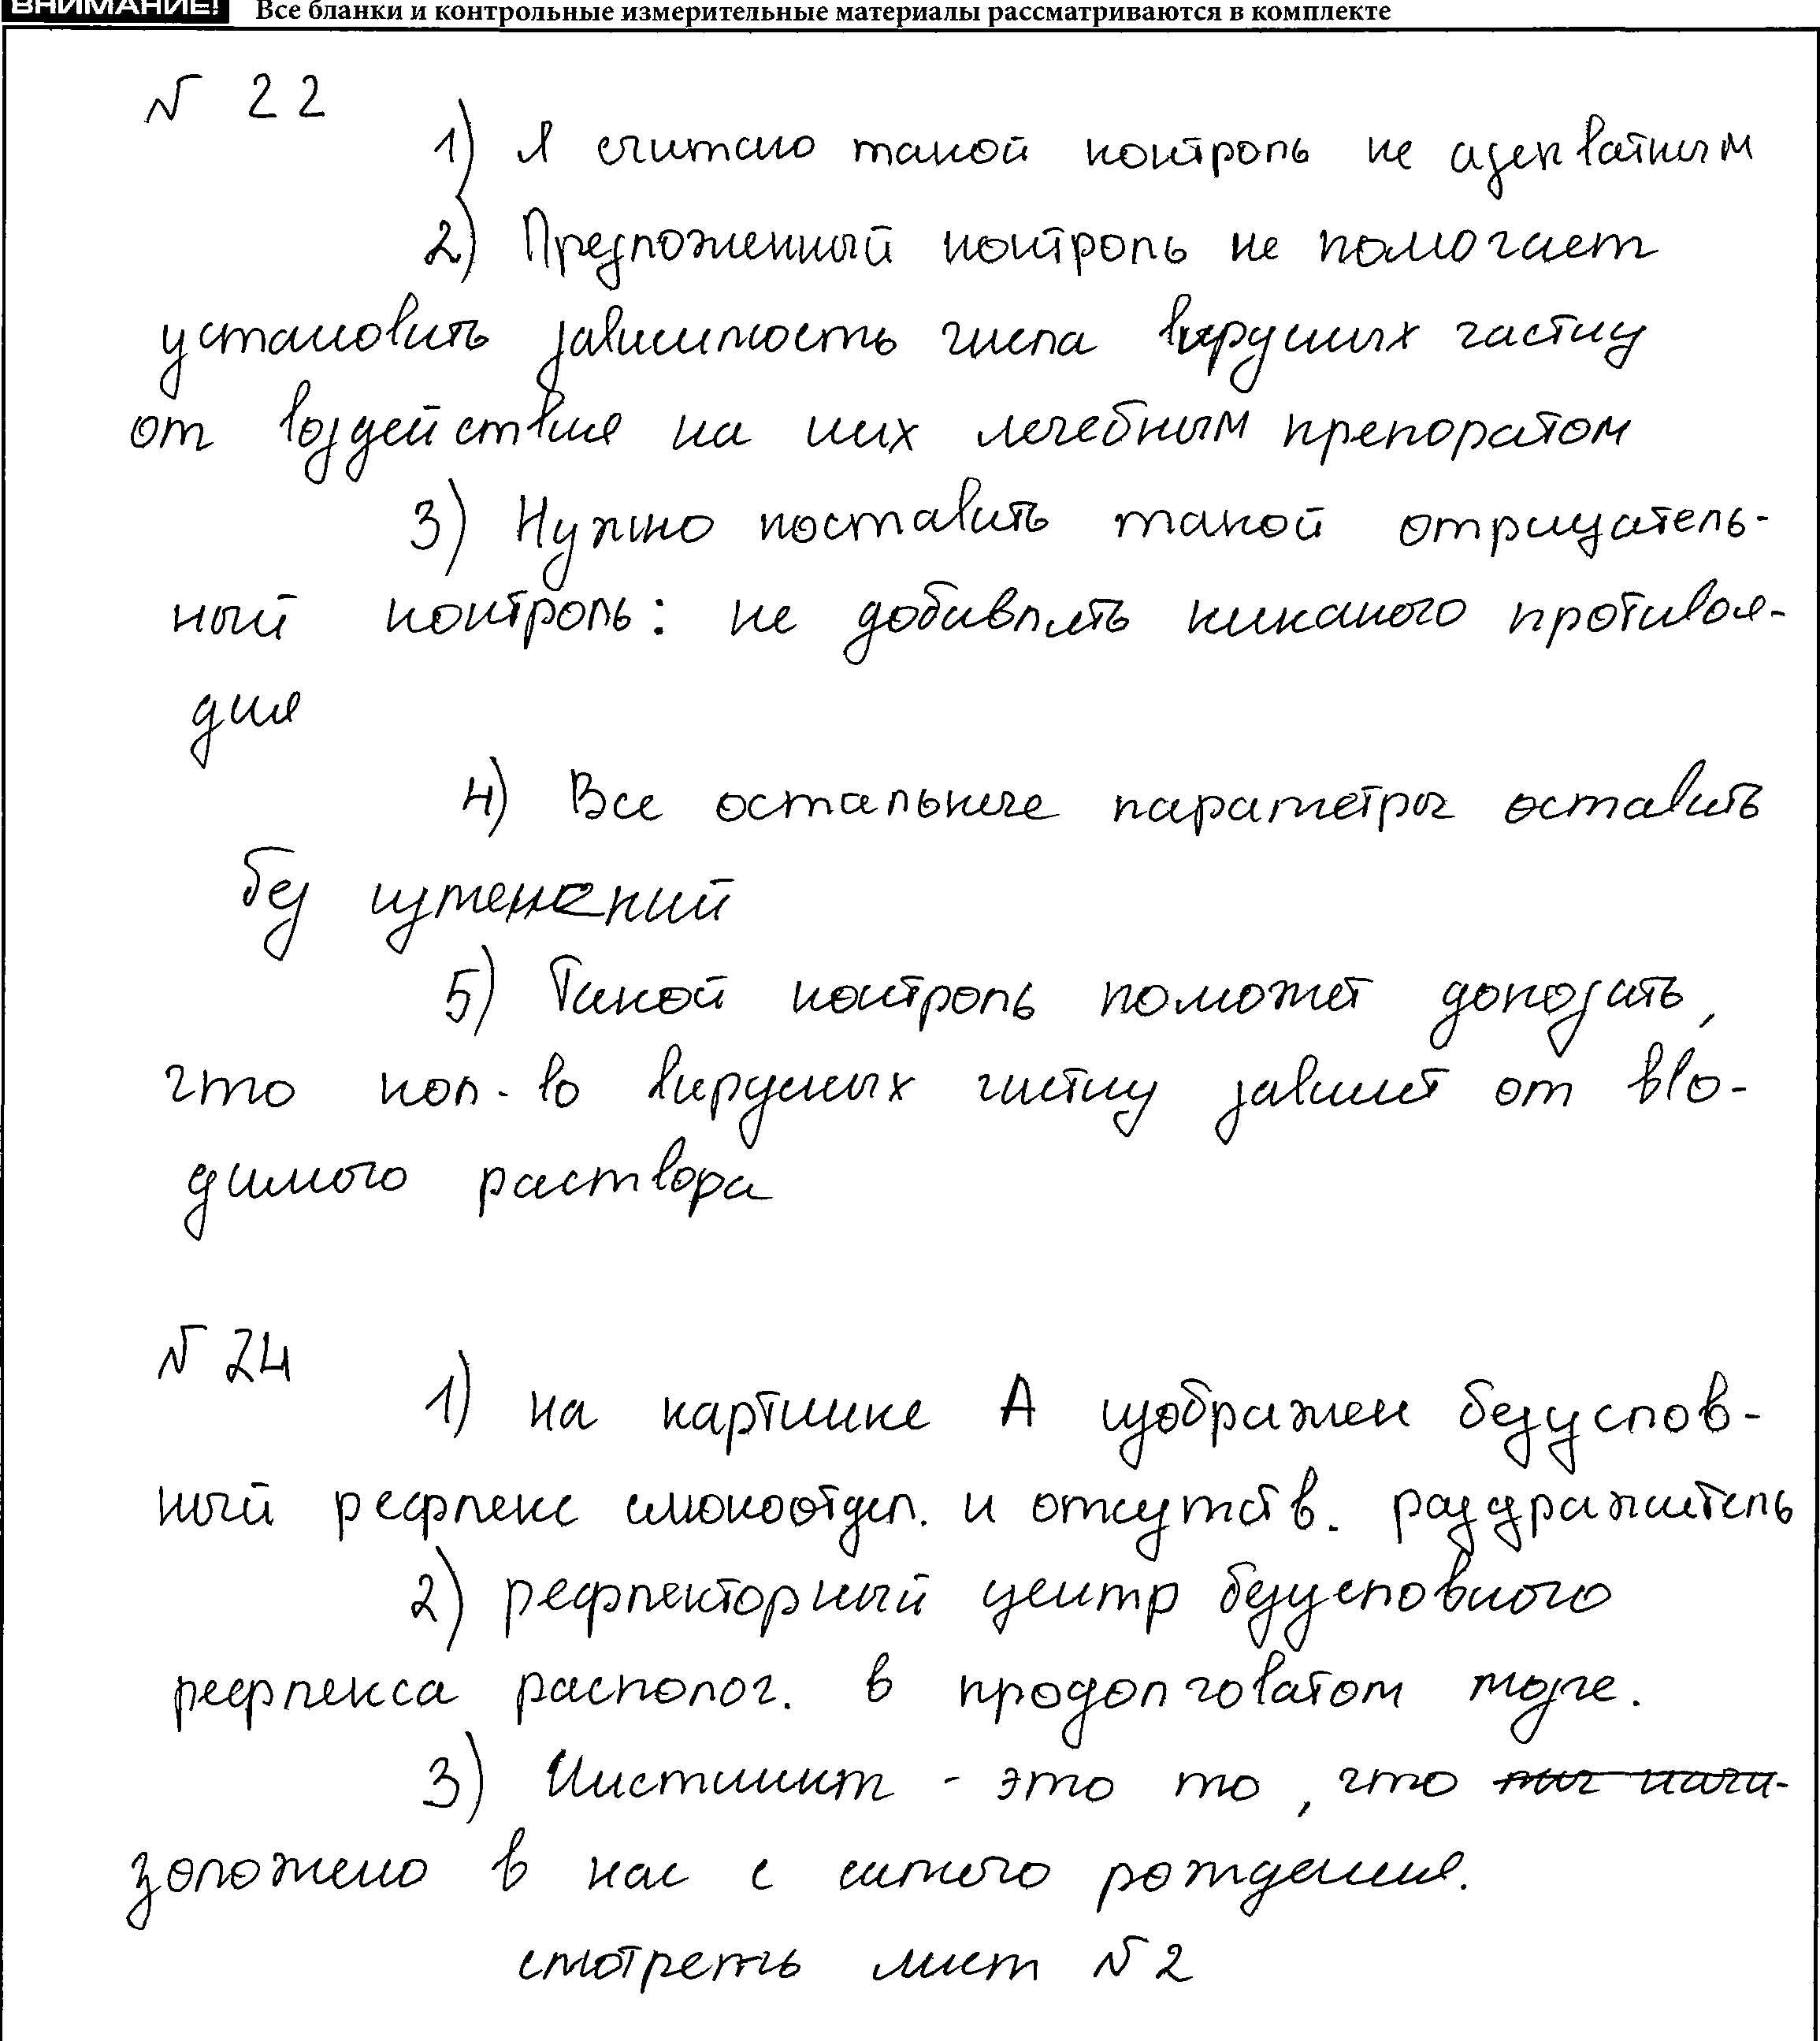 ВНИМАНИЕ! Все бланки и контрольные измерительные материалы рассматриваются в комплекте
№ 22
1) Я считаю такой контроль не адекватным
2) Предложенный контроль не помогает
установить зависимость числа вирусных частиц
от воздействия на них лечебным препоратом
3) Нужно поставить такой отрицатель-
ный контроль: не добавлять никакого противоя-
дия
4) Все остальные параметры оставить
без изменений
5) Такой контроль поможет доказать,
что кол-во вирусных частиц зависит от вво-
димого раствора
№ 24
1) на картинке А изображен безуслов-
ный рефлекс слюноотдел. и отсутств. раздражитель
2) рефлекторный центр безусловного
рефлекса располог. в продолговатом мозге.
3) Инстинкт - это то, что
заложено в нас с самого рождения.
смотреть лист №2